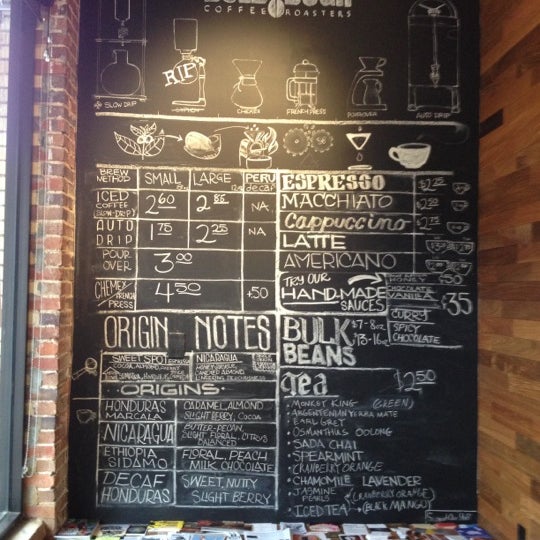 COFFEE ROASTERS
RIP
SLOW DRIP
SYPHON
CHEMEX
FRENCH PRESS
POUROVER
AUTO DRIP
BREW METHOD
SMALL
LARGE
PERU
decaf
ICED COFFEE (SLOW-DRIP)
2.60
2.85
NA
AUTO DRIP
1.75
2.25
NA
POUR OVER
3.00
CHEMEX
FRENCH PRESS
4.50
+50
ESPRESSO
$2.25
MACCHIATO
Cappuccino
LATTE
AMERICANO
TRY OUR
HAND-MADE
SAUCES
HONEY
CHOCOLATE
VANILLA
CURRY
SPICY CHOCOLATE
ORIGIN NOTES
SWEET SPOT ESPRESSO
NICARAGUA
ORIGINS
HONDURAS MARCALA
CARAMEL, ALMOND
SLIGHT BERRY, COCOA
NICARAGUA
BUTTER-PECAN,
SLIGHT FLORAL, CITRUS
BALANCED
ETHIOPIA SIDAMO
FLORAL, PEACH
MILK CHOCOLATE
DECAF HONDURAS
SWEET, NUTTY
SLIGHT BERRY
BULK BEANS
$7-8oz
$13-16oz
tea
$2.50
• MONKEY KING (GREEN)
• ARGENTENIAN YERBA MATE
• EARL GREY
• OSMANTHUS OOLONG
• SADA CHAI
• SPEARMINT
• CRANBERRY ORANGE
• CHAMOMILE LAVENDER
• JASMINE PEARLS
• ICED TEA
(CRANBERRY ORANGE)
(BLACK MANGO)